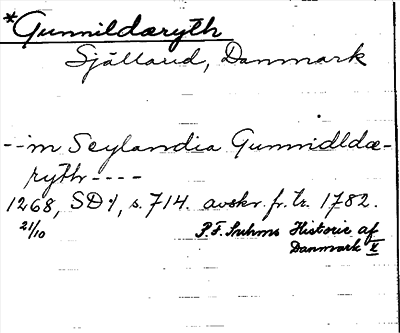 *Gunnildæryth
Själland, Danmark
--in Seylandia Gunnidldæ-
ryth----
1268, SD1, s. 714. avskr. fr. tr. 1782.
21/10 P.F. Suhms Historie af
Danmark X